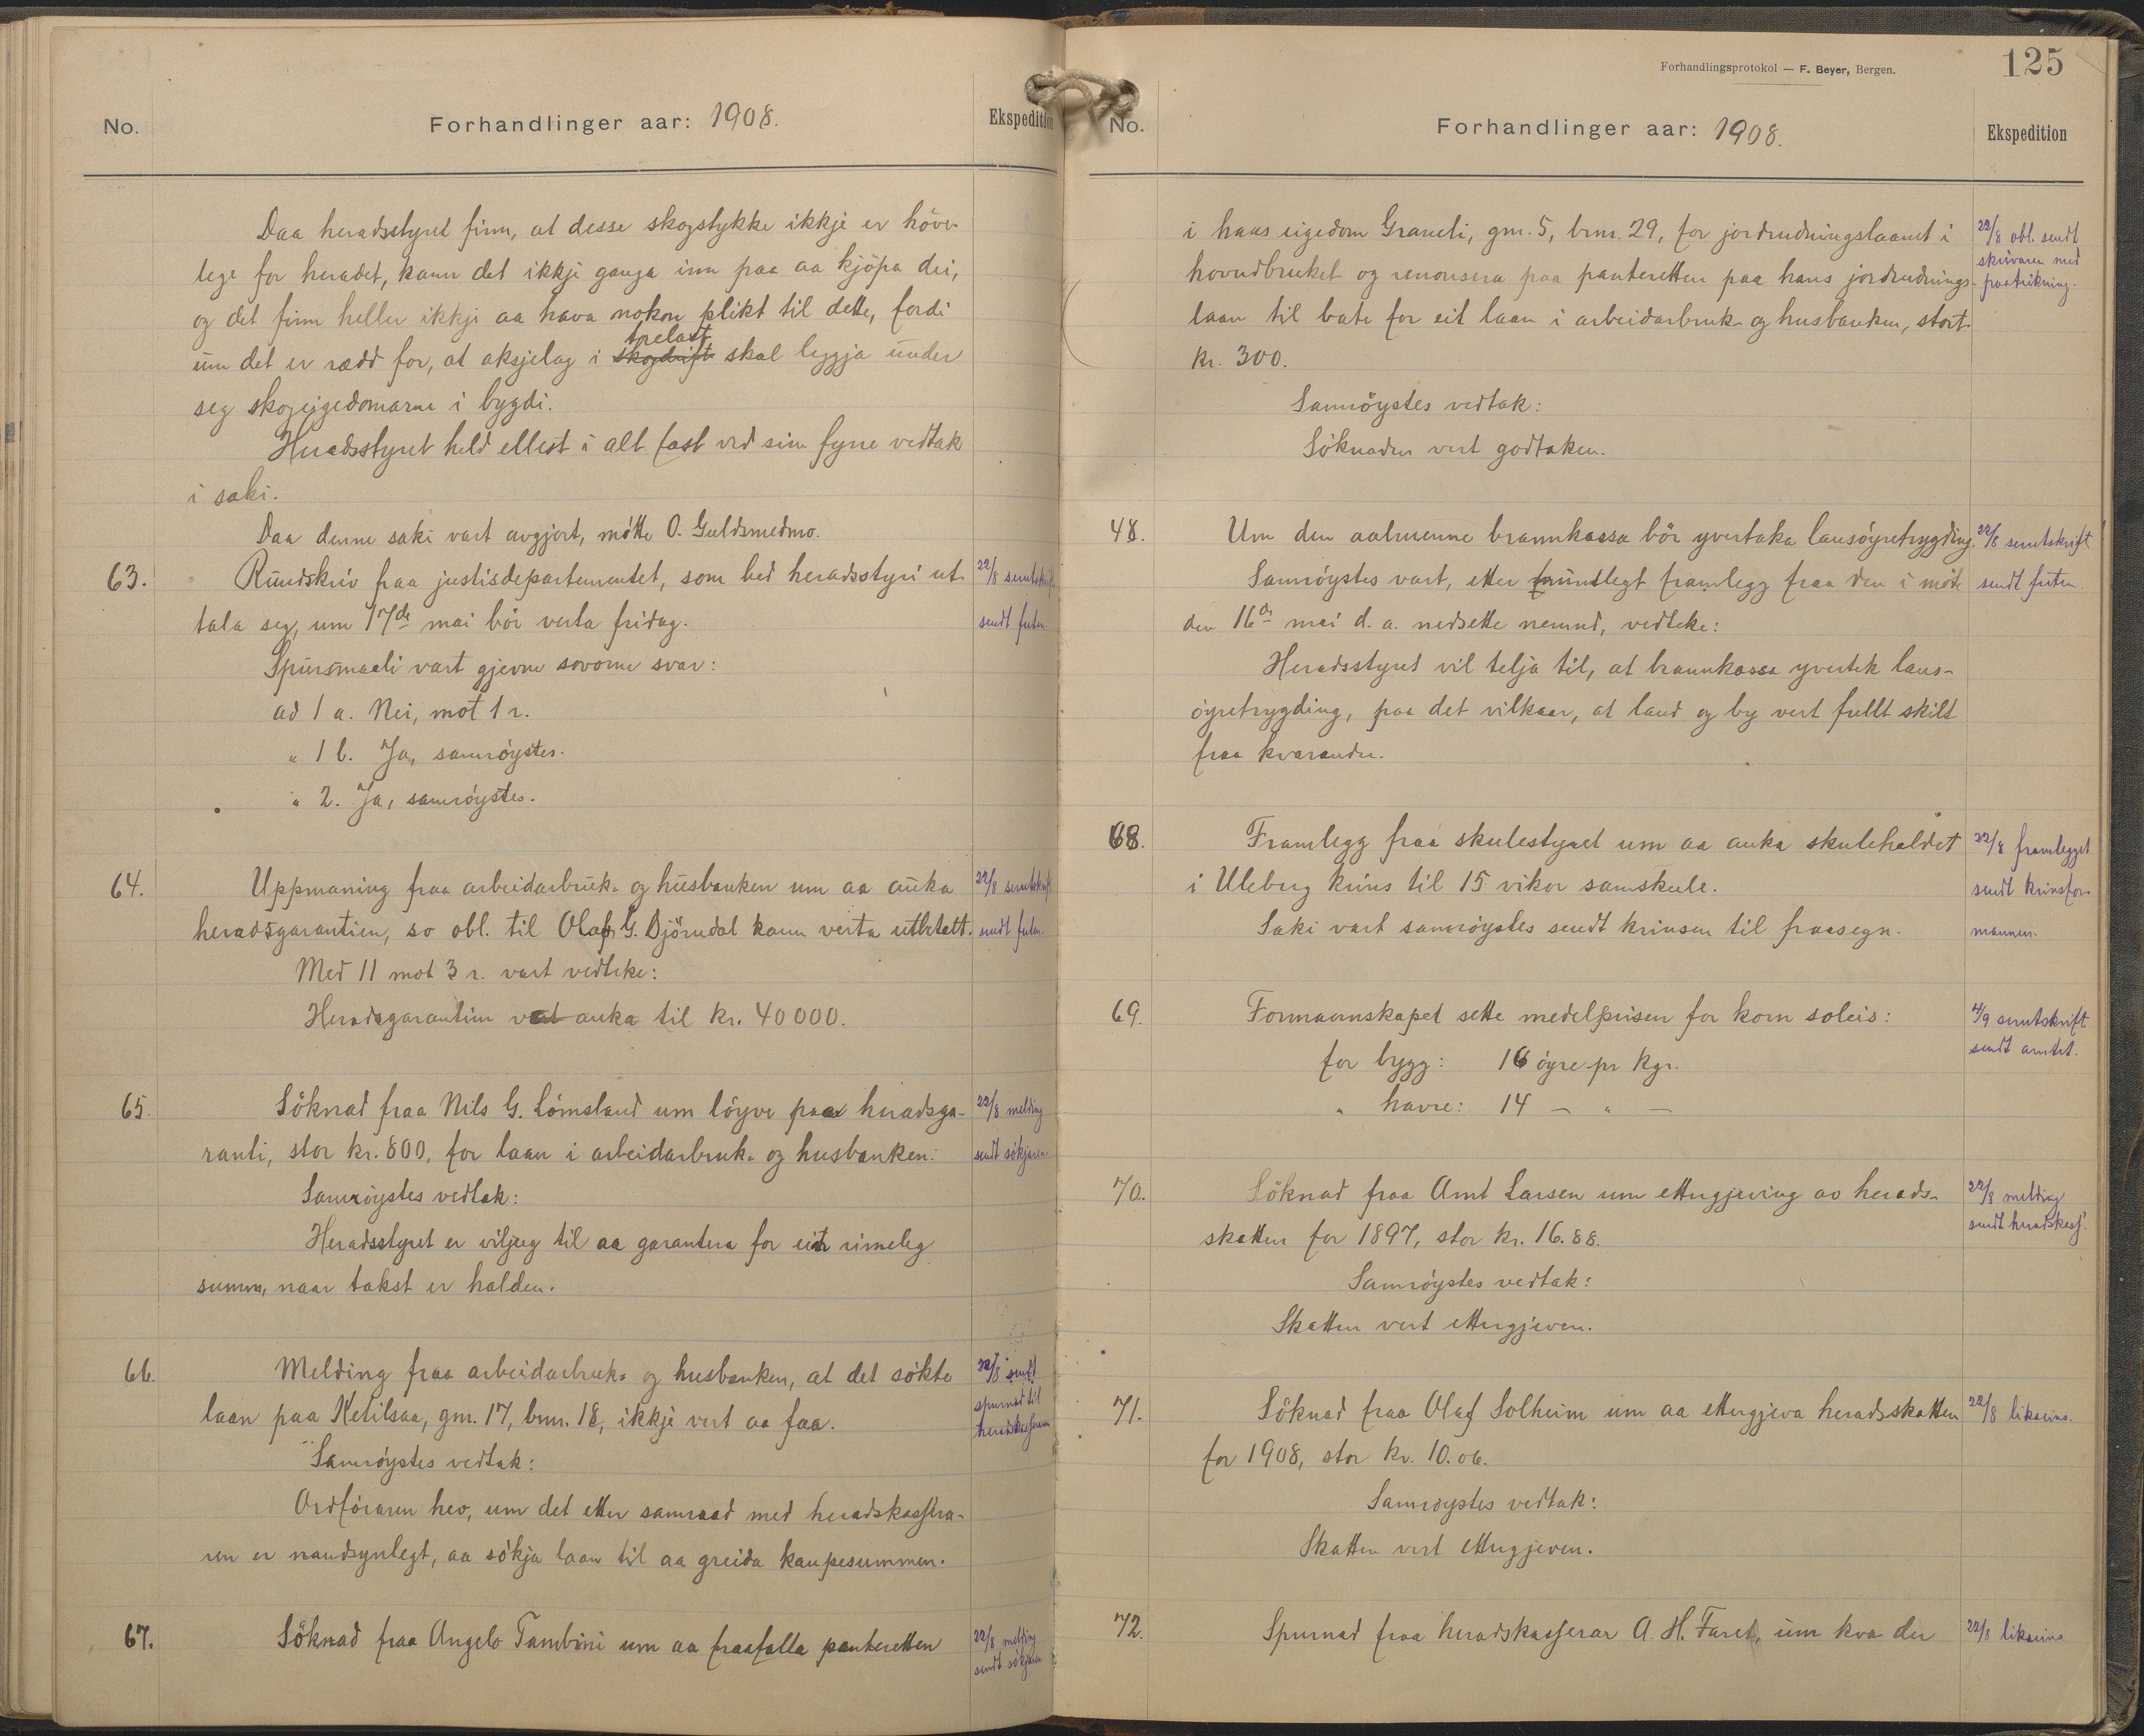 No.
Forhandlinger aar: 1908.
Ekspedition
Daa heradsstyret finn, at desse skogstykke ikkje er höve-
lege for heradet, kann det ikkje ganga inn paa aa kjöpa dei,
og det finn heller ikkji aa hava nokon plikt til dette, fordi
trelast
um det er rædd for, at aksjelag i skogdrift skal leggja under
seg skogeigedomarne i bygdi.
Heradsstyret held ellest i alt fast ved sin fyrre vedtak
i saki.
Daa denne saki vart avgjort, mötte O. Guldsmedmo.
63.
Rundskriv fraa justisdepartementet, som bed heradsstyri ut-
22/8 serutskrift
tala seg, um 17de mai bör verta fridag.
sendt futen
Spursmaali vart gjevne sovorne svar:
ad 1 a. Nei, mot 1 r.
" 1 b. Ja, samröystes.
" 2. Ja, samröystes.
64.
Uppmaning fraa arbeidarbruk- og husbanken um aa auka
22/8 serutskrift
heradsgarantien, so obl. til Olaf G. Djörndal kann verta utbetalt.
sendt futen.
Med 11 mot 3 r. vart vedteke:
Heradsgarantien vert auka til kr. 40 000.
65.
Söknad fraa Nils G. Lömsland um löyve paa heradsga-
22/8 melding
ranti, stor kr. 800, for laan i arbeidarbruk- og husbanken.
sendt sökjaren
Samröystes vedtak:
Heradsstyret er viljug til aa garantera for ein rimeleg
summ, naar takst er halden.
66.
Melding fraa arbeidarbruk- og husbanken, at det sökte
22/8 sendt
laan paa Ketilsaa, gnr. 17, bnr. 18, ikkje vert aa faa.
spurnad til
heradskasseraren
Samröystes vedtak:
Ordföraren hev, um det etter samraad med heradskassera-
ren er naudsynlegt, aa sökja laan til aa greida kaupesummen.
67.
Söknad fraa Angelo Tambini um aa fraafalla panteretten
22/8 melding
sendt sökjaren
Forhandlingsprotokol — F. Beyer, Bergen.
125
No.
Forhandlinger aar: 1908.
Ekspedition
i hans eigedom Graneli, gnr. 5, bnr. 29, for jordrudningslaanet i
22/8 obl. sendt
hovudbruket og renonsera paa panteretten paa hans jordrudnings-
skrivaren med
paateikning.
laan til bate for eit laan i arbeidarbruk- og husbanken, stort
kr. 300.
Samröystes vedtak:
Söknaden vert godtaken.
48.
Um den aalmenne brannkassa bör yvertaka lausöyretrygding.
22/8 serutskrift
Samröystes vart, etter munnlegt framlegg fraa den i möte
sendt futen.
den 16de mai d. a. nedsette nemnd, vedteke:
Heradsstyret vil telja til, at brannkassa yvertek laus-
öyretrygding, paa det vilkaar, at land og by vert fullt skilt
fraa kvarandre.
68.
Framlegg fraa skulestyret um aa auka skulehaldet
22/8 framlegget
i Uleberg krins til 15 vikor samskule.
sendt krinsfor-
Saki vart samröystes sendt krinsen til fraasegn.
mannen.
69.
Formannskapet sette medelprisen for korn soleis:
4/9 serutskrift
sendt amtet.
for bygg: 16 öyre pr kgr.
" havre: 14 — " —
70.
Söknad fraa Arnt Larsen um ettergjeving av herads-
22/8 melding
sendt heradskass.
skatten for 1897, stor kr. 16.88.
Samröystes vedtak:
Skatten vert ettergjeven.
71.
Söknad fraa Olaf Solheim um aa ettergjeva heradsskatten
22/8 likeeins.
for 1908, stor kr. 10.06.
Samröystes vedtak:
Skatten vert ettergjeven.
72.
Spurnad fraa heradskasserar A. H. Faret, um kva der
22/8 likeeins